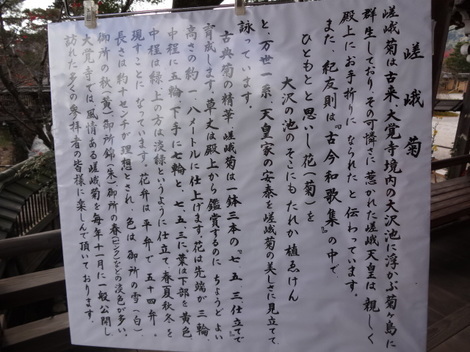 嵯峨菊
嵯峨菊は古来大覚寺境内の大沢池に浮かぶ菊ヶ島に
群生しており、その可憐さに惹かれた嵯峨天皇は親しく
殿上にお手折りになられたと伝わっています。
また、紀友則は『古今和歌集』の中で
ひともとと思いし花(菊)を
大沢の池のそこにもたれか植ゑけん
と、万世一系、天皇家の安泰を嵯峨菊の美しさに見立てて
詠っています。
古典菊の精華嵯峨菊は一鉢三本の〝七五三仕立〟で
育成します。草丈は殿上から鑑賞するのにちょうどよい
高さの約一.八メートルに仕上げます。花は先端が三輪
中程に五輪、下手に七輪と、七・五・三に、葉は下部を黄色
中程は緑、上の方は淡緑というように仕立て、春夏秋冬を
現すことになっています。花弁は平弁で五十四弁、
長さは約十センチが理想とされ、色は、御所の雪(白)、
御所の秋(黄)、御所錦(朱)、御所の春(ピンク)などの淡色が多い。
大覚寺では、風情ある嵯峨菊を毎年十一月に一般公開し
訪れた多くの参拝者の皆様に楽しんで頂いております。